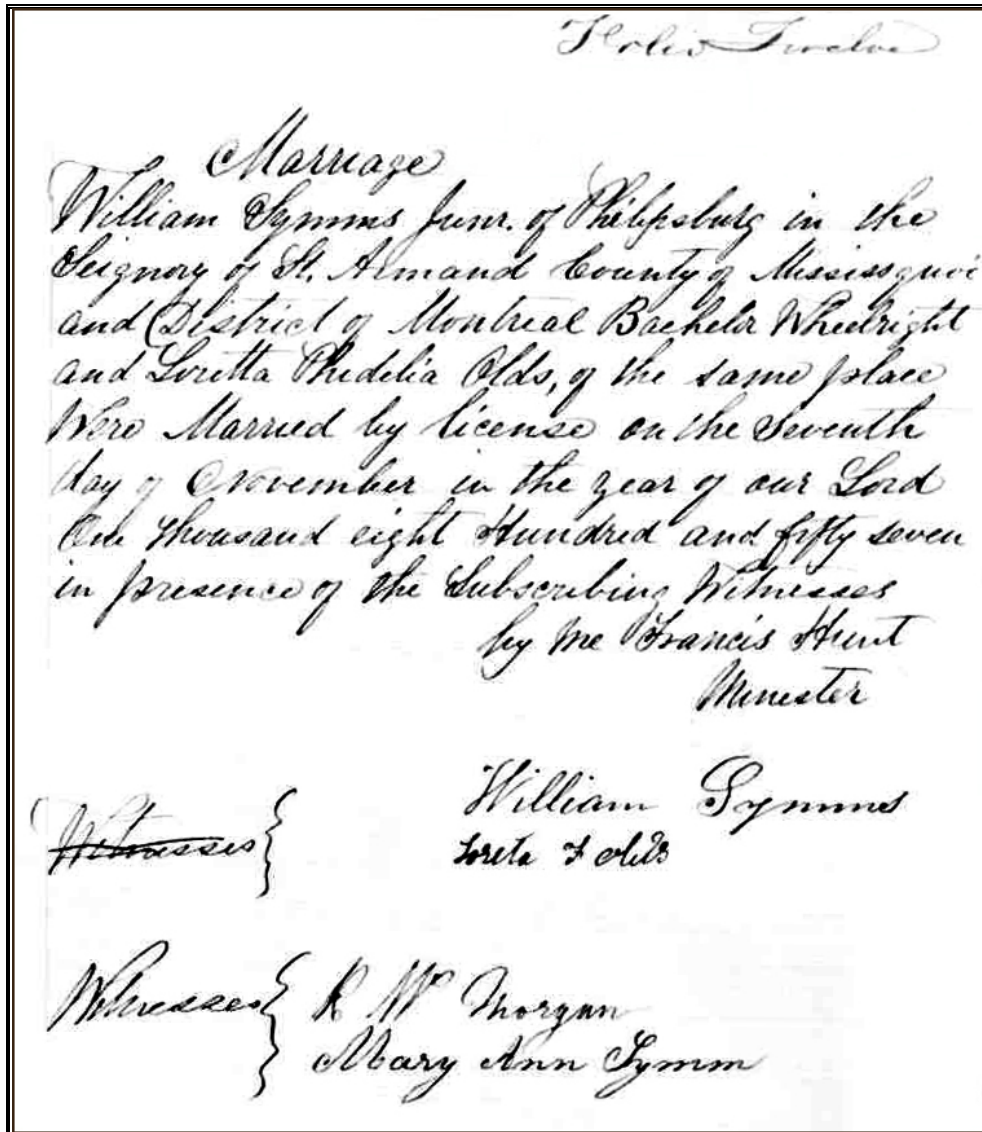 Folio Twelve
Marriage
William Symms Junr. of Philipsburg in the
Seignory of St. Armand County of Mississquoi
and District of Montreal Bachelor Wheelright
and Loretta Phidelia Olds, of the same place
Were Married by license on the Seventh
day of November in the year of our Lord
One thousand eight Hundred and fifty seven
in presence of the Subscribing Witnesses
by me Francis Hunt
Minester
William Symms
Loreta F Olds
Witnesses
Witnesses
R W Morgan
Mary Ann Symm